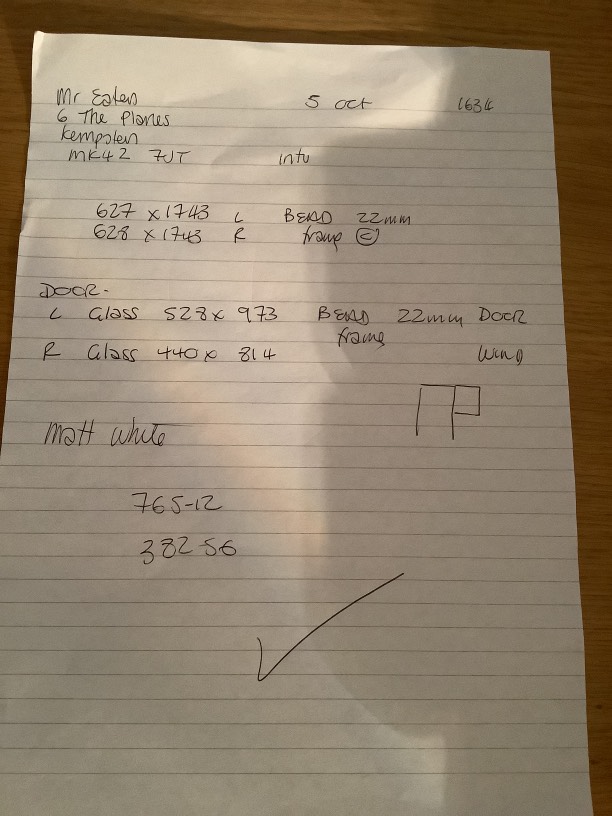 Mr Eaten 5 oct 1634
6 The Planes
Kempsten
MK42 7JT intu
627 x 1743 L BEAD 22mm
628 x 1743 R frame C
DOOR-
L Glass 528 x 973 BEAD 22mm DOOR
frame
R Glass 440 x 814 Wind
Matt white
765-12
382-56